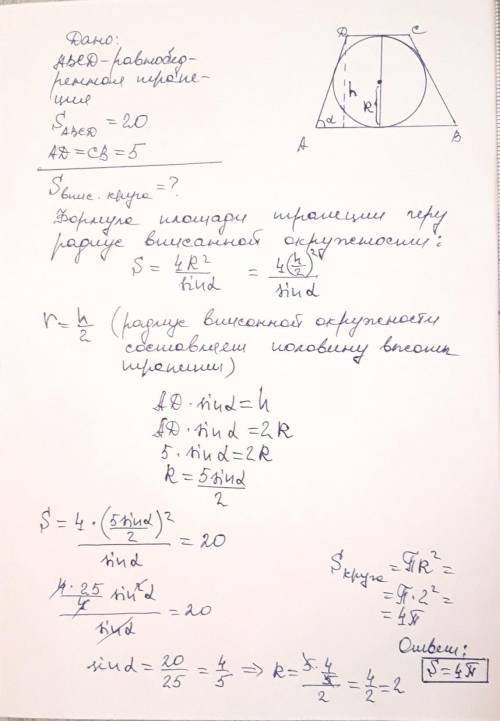 Дано:
ABCD-равнобед-
ренная трапе-
ция
S_ABCD = 20
AD = CB = 5
S впис. круга = ?
D C
h
R
α
A B
Формула площади трапеции через
радиус вписанной окружности:
S = 4R²/sinα = 4(h/2)²/sinα
r = h/2 (радиус вписанной окружности
составляет половину высоты
трапеции)
AD · sinα = h
AD · sinα = 2R
5 · sinα = 2R
R = 5sinα/2
S = 4 · (5sinα/2)²/sinα = 20
4 · 25/4 sin²α/sinα = 20
sinα = 20/25 = 4/5 ⇒ R = 5·4/5/2 = 4/2 = 2
S круга = πR² =
= π · 2² =
= 4π
Ответ:
S = 4π